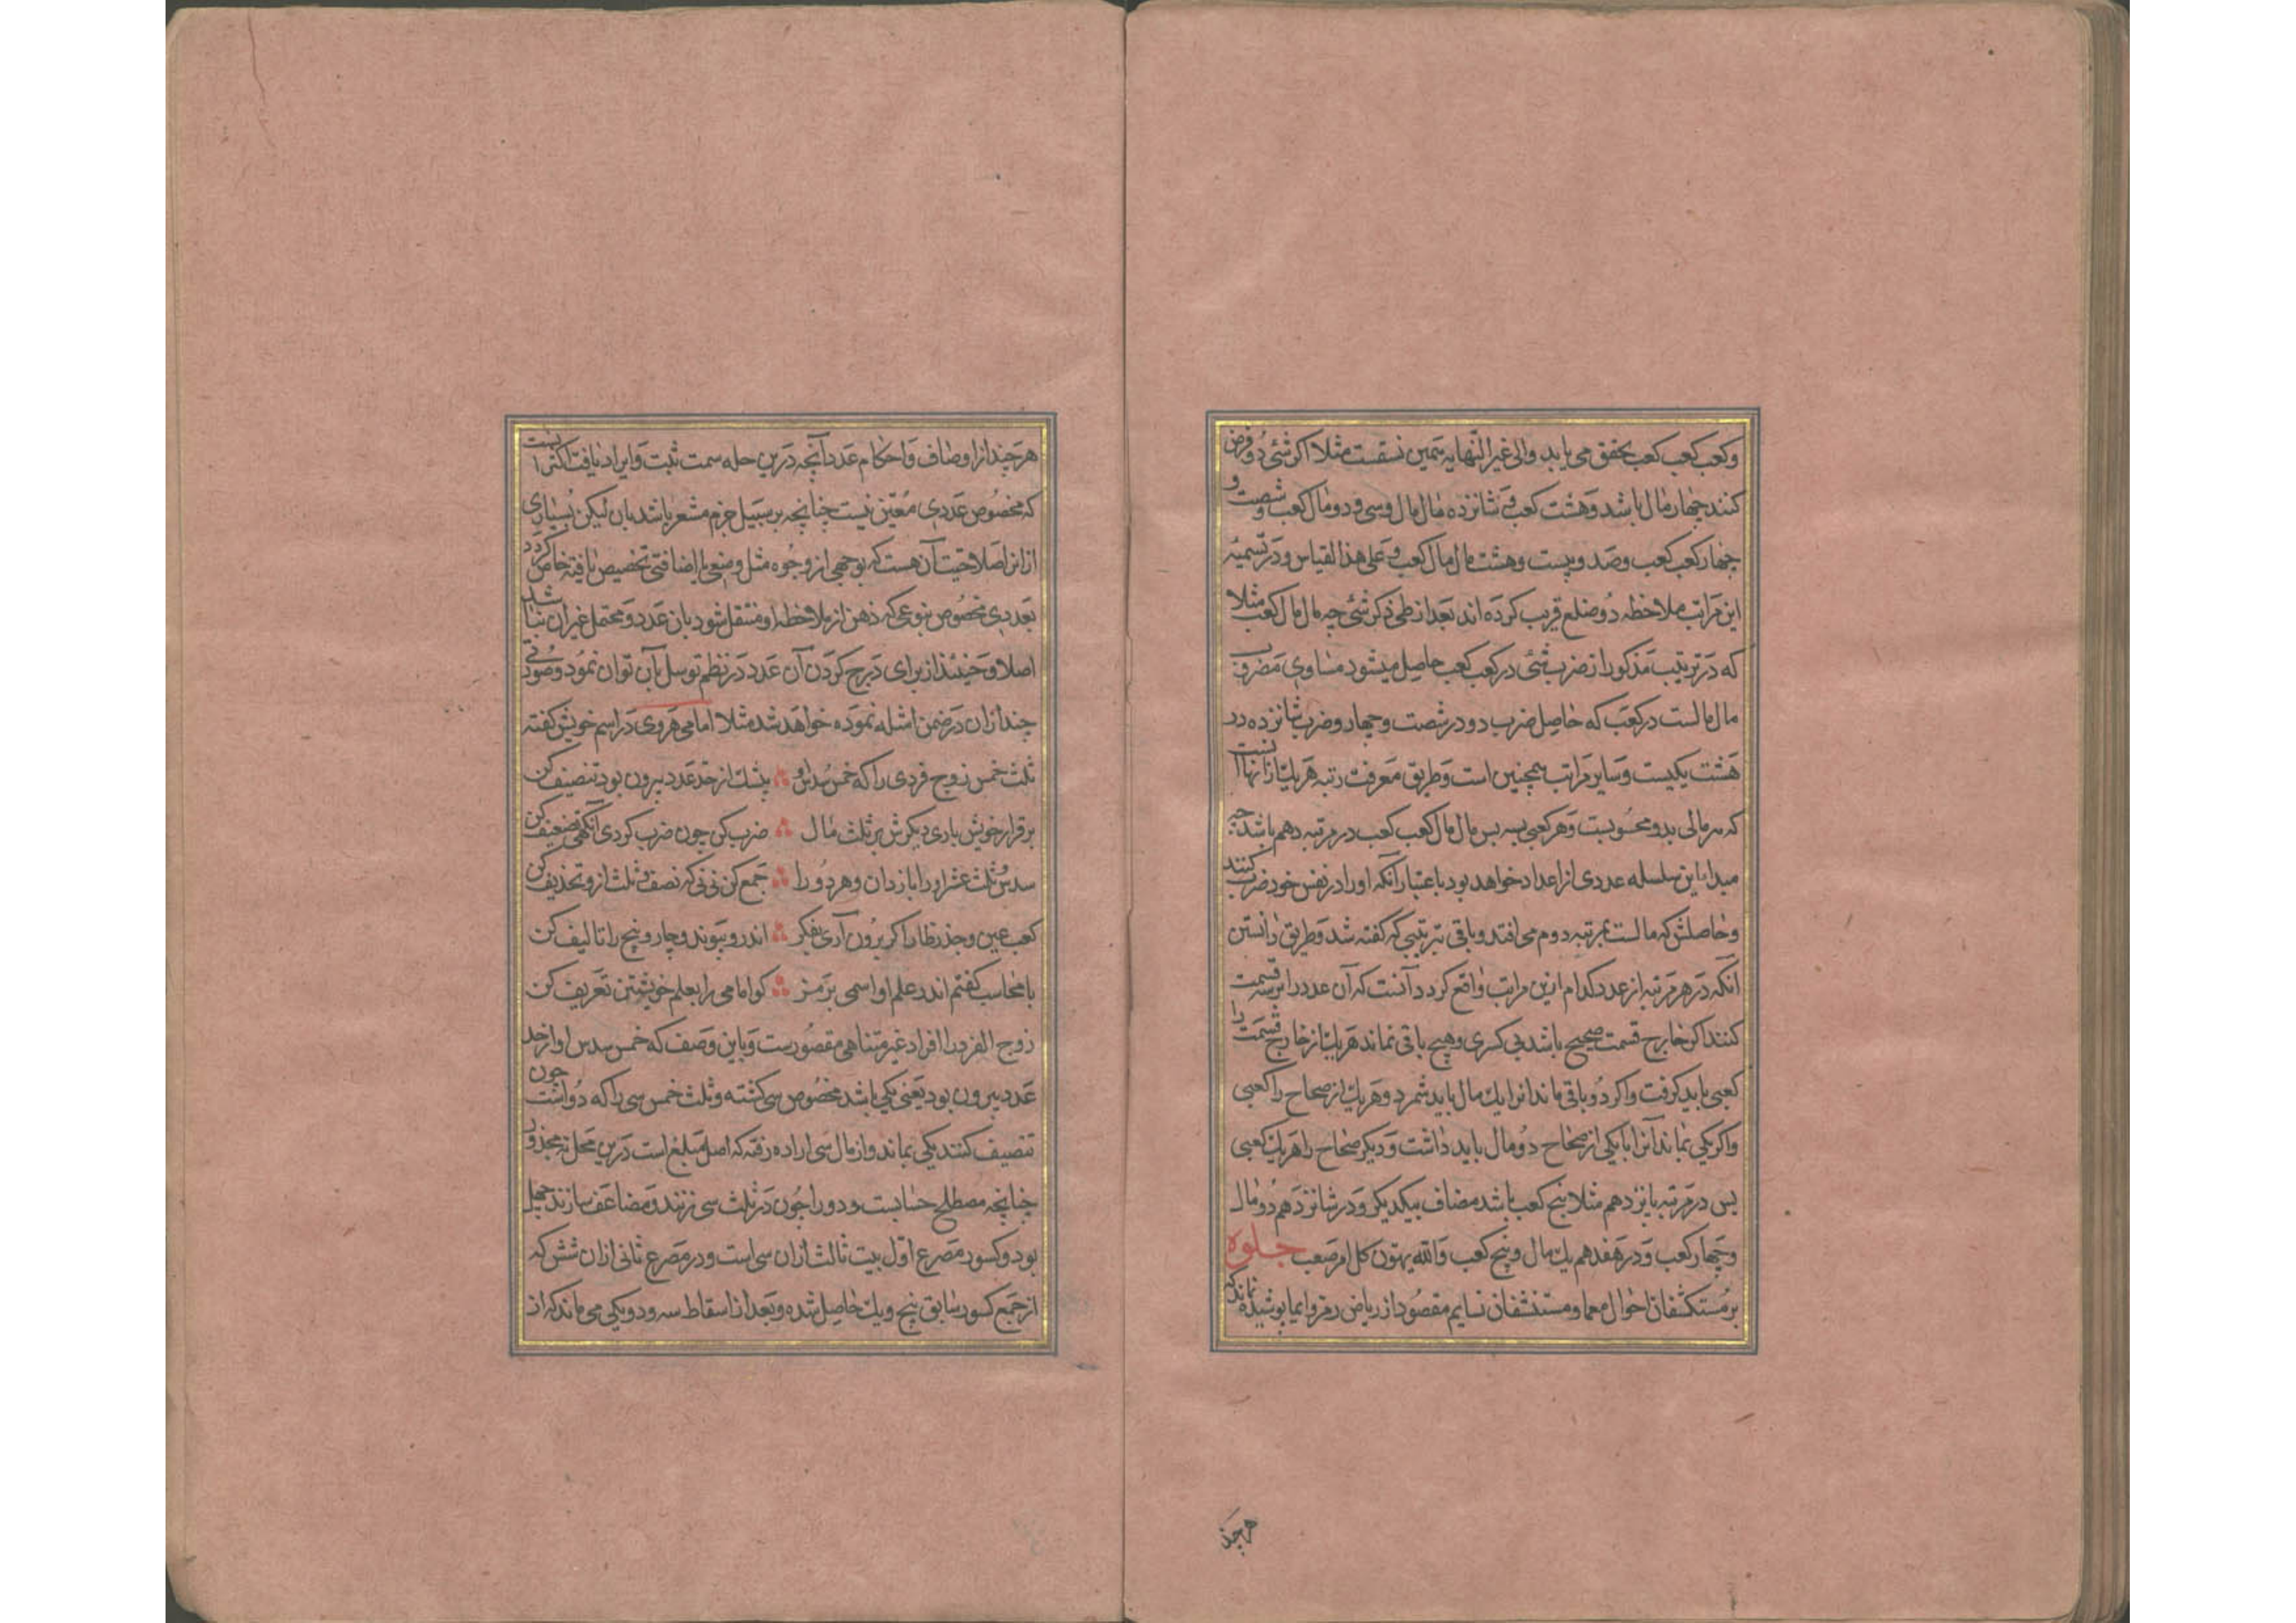 وکعب کعب کعب تحقق می یابد والی غیر النهایه بهمین نسقست مثلا اکر شئی دو فرض
کنند چهار مال باشد و هشت کعب و شانزده مال مال و سی و دو مال کعب و شصت و
چهار کعب کعب وصد وبیست وهشت مال مال کعب وعلی هذا القیاس ودر تسمیهٔ
این مراتب ملاحظه دو ضلع قریب کرده اند بعد از طی ذکر شئی چه مال مال کعب مثلا
که در ترتیب مذکور از ضرب شئی در کعب کعب حاصل میشود مساوی مضروب
مال مالست در کعب که حاصل ضرب دو در شصت وچهار وضرب شانزده در
هشت یکیست وسایر مراتب همچنین است وطریق معرفت رتبه هر یک از انها آنست
که هر مالی بدو محسوبست وهر کعبی بسه پس مال مال کعب کعب در مرتبه دهم باشد چه
مبداء این سلسله عددی از اعداد خواهد بود باعتبار آنکه اورا در نفس خود ضرب کنند
وحاصلش که مالست بمرتبه دوم می افتد وباقی بترتیبی که کفته شد وطریق دانستن
آنکه در هر مرتبه از عدد کدام ازین مراتب واقع کردد آنست که آن عدد را بر سه قسمت
کنند اکر خارج قسمت صحیح باشد بی کسری وهیچ باقی نماند هر یک از خارج قسمت را
کعبی باید کرفت واکر دو باقی ماند انرا یک مال باید شمرد وهر یک از صحاح را کعبی
واکر یکی بماند آنرا با یکی از صحاح دو مال باید داشت ودیکر صحاح را هر یک کعبی
پس در مرتبه پانزدهم مثلا پنج کعب باشد مضاف بیکدیکر ودر شانزدهم دو مال
وچهار کعب ودر هفدهم یک مال وپنج کعب والله یهون کل امر صعب جلوه
بر مستکشفان احوال معما ومستنشقان نسایم مقصود از ریاض رمز وایما پوشیده نماند که
هر چند
هر چند از اوصاف واحکام عدد آنچه درین حله سمت ثبت وایراد یافت اکثر آنست
که مخصوص عددی معین نیست چنانچه بر سبیل جزم مشعر باشد بان لیکن بسیاری
از انرا صلاحیت آن هست که بوجهی از وجوه مثل وضعی یا اضافتی تخصیص یافته خاص کردد
بعددی مخصوص بنوعی که ذهن از ملاحظه او منتقل شود بان عدد و محتمل غیر ان نباشد
اصلا وحینئذ از برای درج کردن آن عدد در نظم توسل بآن توان نمود وصورتی
چند از ان در ضمن امثله نموده خواهد شد مثلا امامی هروی در اسم خویش کفته
ثلث خمس زوج فردی را که خمس سدس او بیشک از حد عدد بیرون بود تنصیف کن
بر قرار خویش باری دیکرش بر ثلث مال ضرب کن چون ضرب کردی آنکهی تضعیف کن
سدس وثلث عشر اورا باز دان وهر دو را جمع کن نی نی که نصف وثلث ازو تحذیف کن
کعب عین وجذر ظا را کر برون آری بفکر اندرو پیوند وچار وپنج را تالیف کن
با محاسب کفتم اندر علم او اسمی برمز کو امامی را بعلم خویشتن تعریف کن
زوج الفرد را افراد غیر متناهی مقصورست وباین وصف که خمس سدس او از حد
عدد بیرون بود یعنی یکی باشد مخصوص سی کشته وثلث خمس سی را که دو است چون
تنصیف کنند یکی بماند واز مال سی اراده رفته که اصل مبلغ است درین محل نه مجذور
چنانچه مصطلح حسابست ودو را چون در ثلث سی زنند ومضاعف سازند چهل
بود وکسور مصرع اول بیت ثالث از ان سی است ودر مصرع ثانی از ان شش که
از جمع کسور سابق پنج ویک حاصل شده وبعد از اسقاط سه ودو یکی می ماند که از